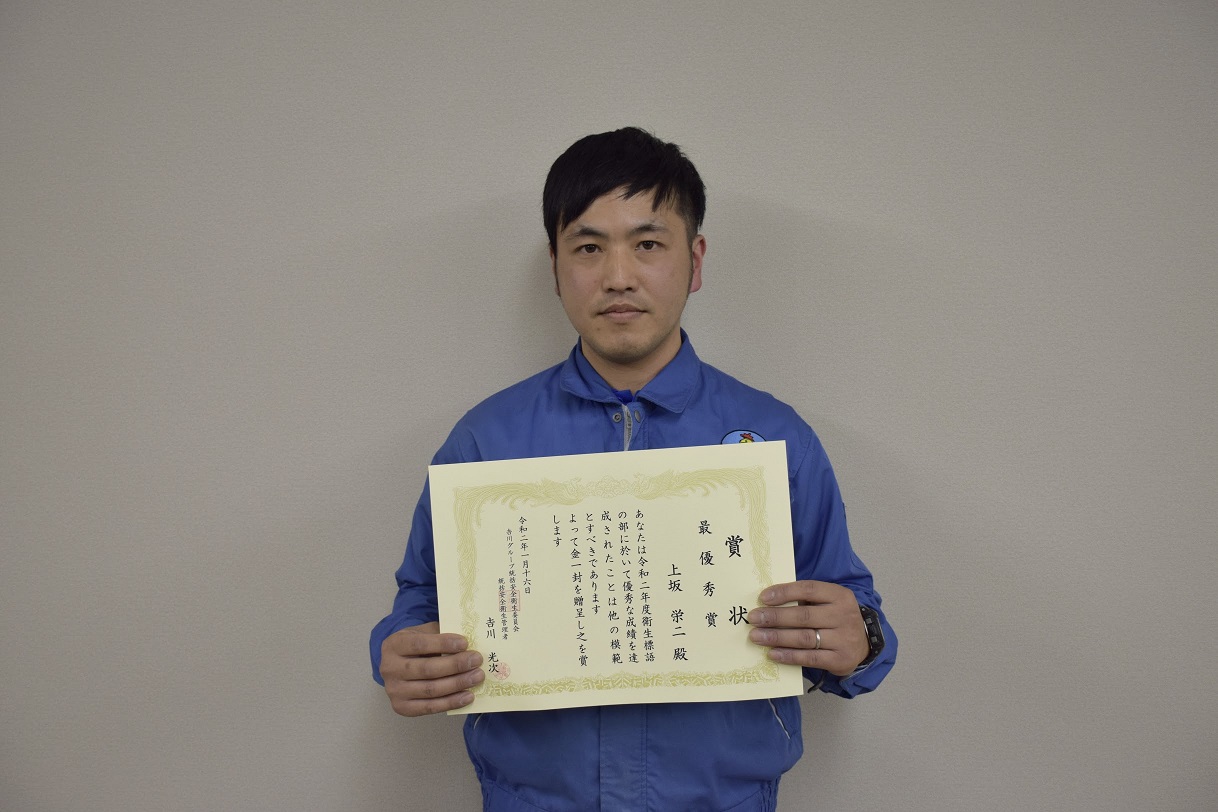 賞状
最優秀賞
上坂 栄二 殿
あなたは令和二年度衛生標語
の部に於いて優秀な成績を達
成されたことは他の模範
とすべきであります
よって金一封を贈呈し之を賞
します
令和二年一月十六日
吉川グループ統括安全衛生委員会
統括安全衛生管理者
吉川 光次